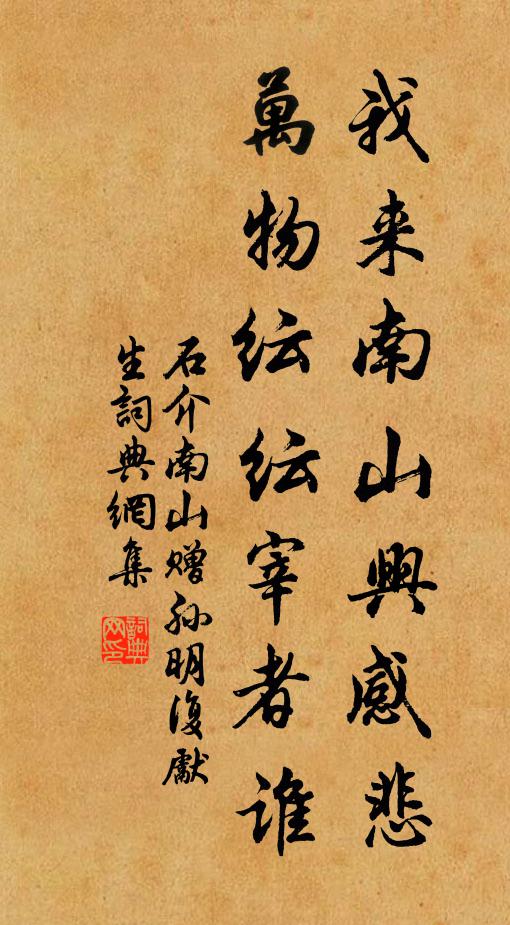 我来南山興感悲
萬物纭纭宰者谁
石介南山赠孙明復獻
生詞典網集
詞典
网印